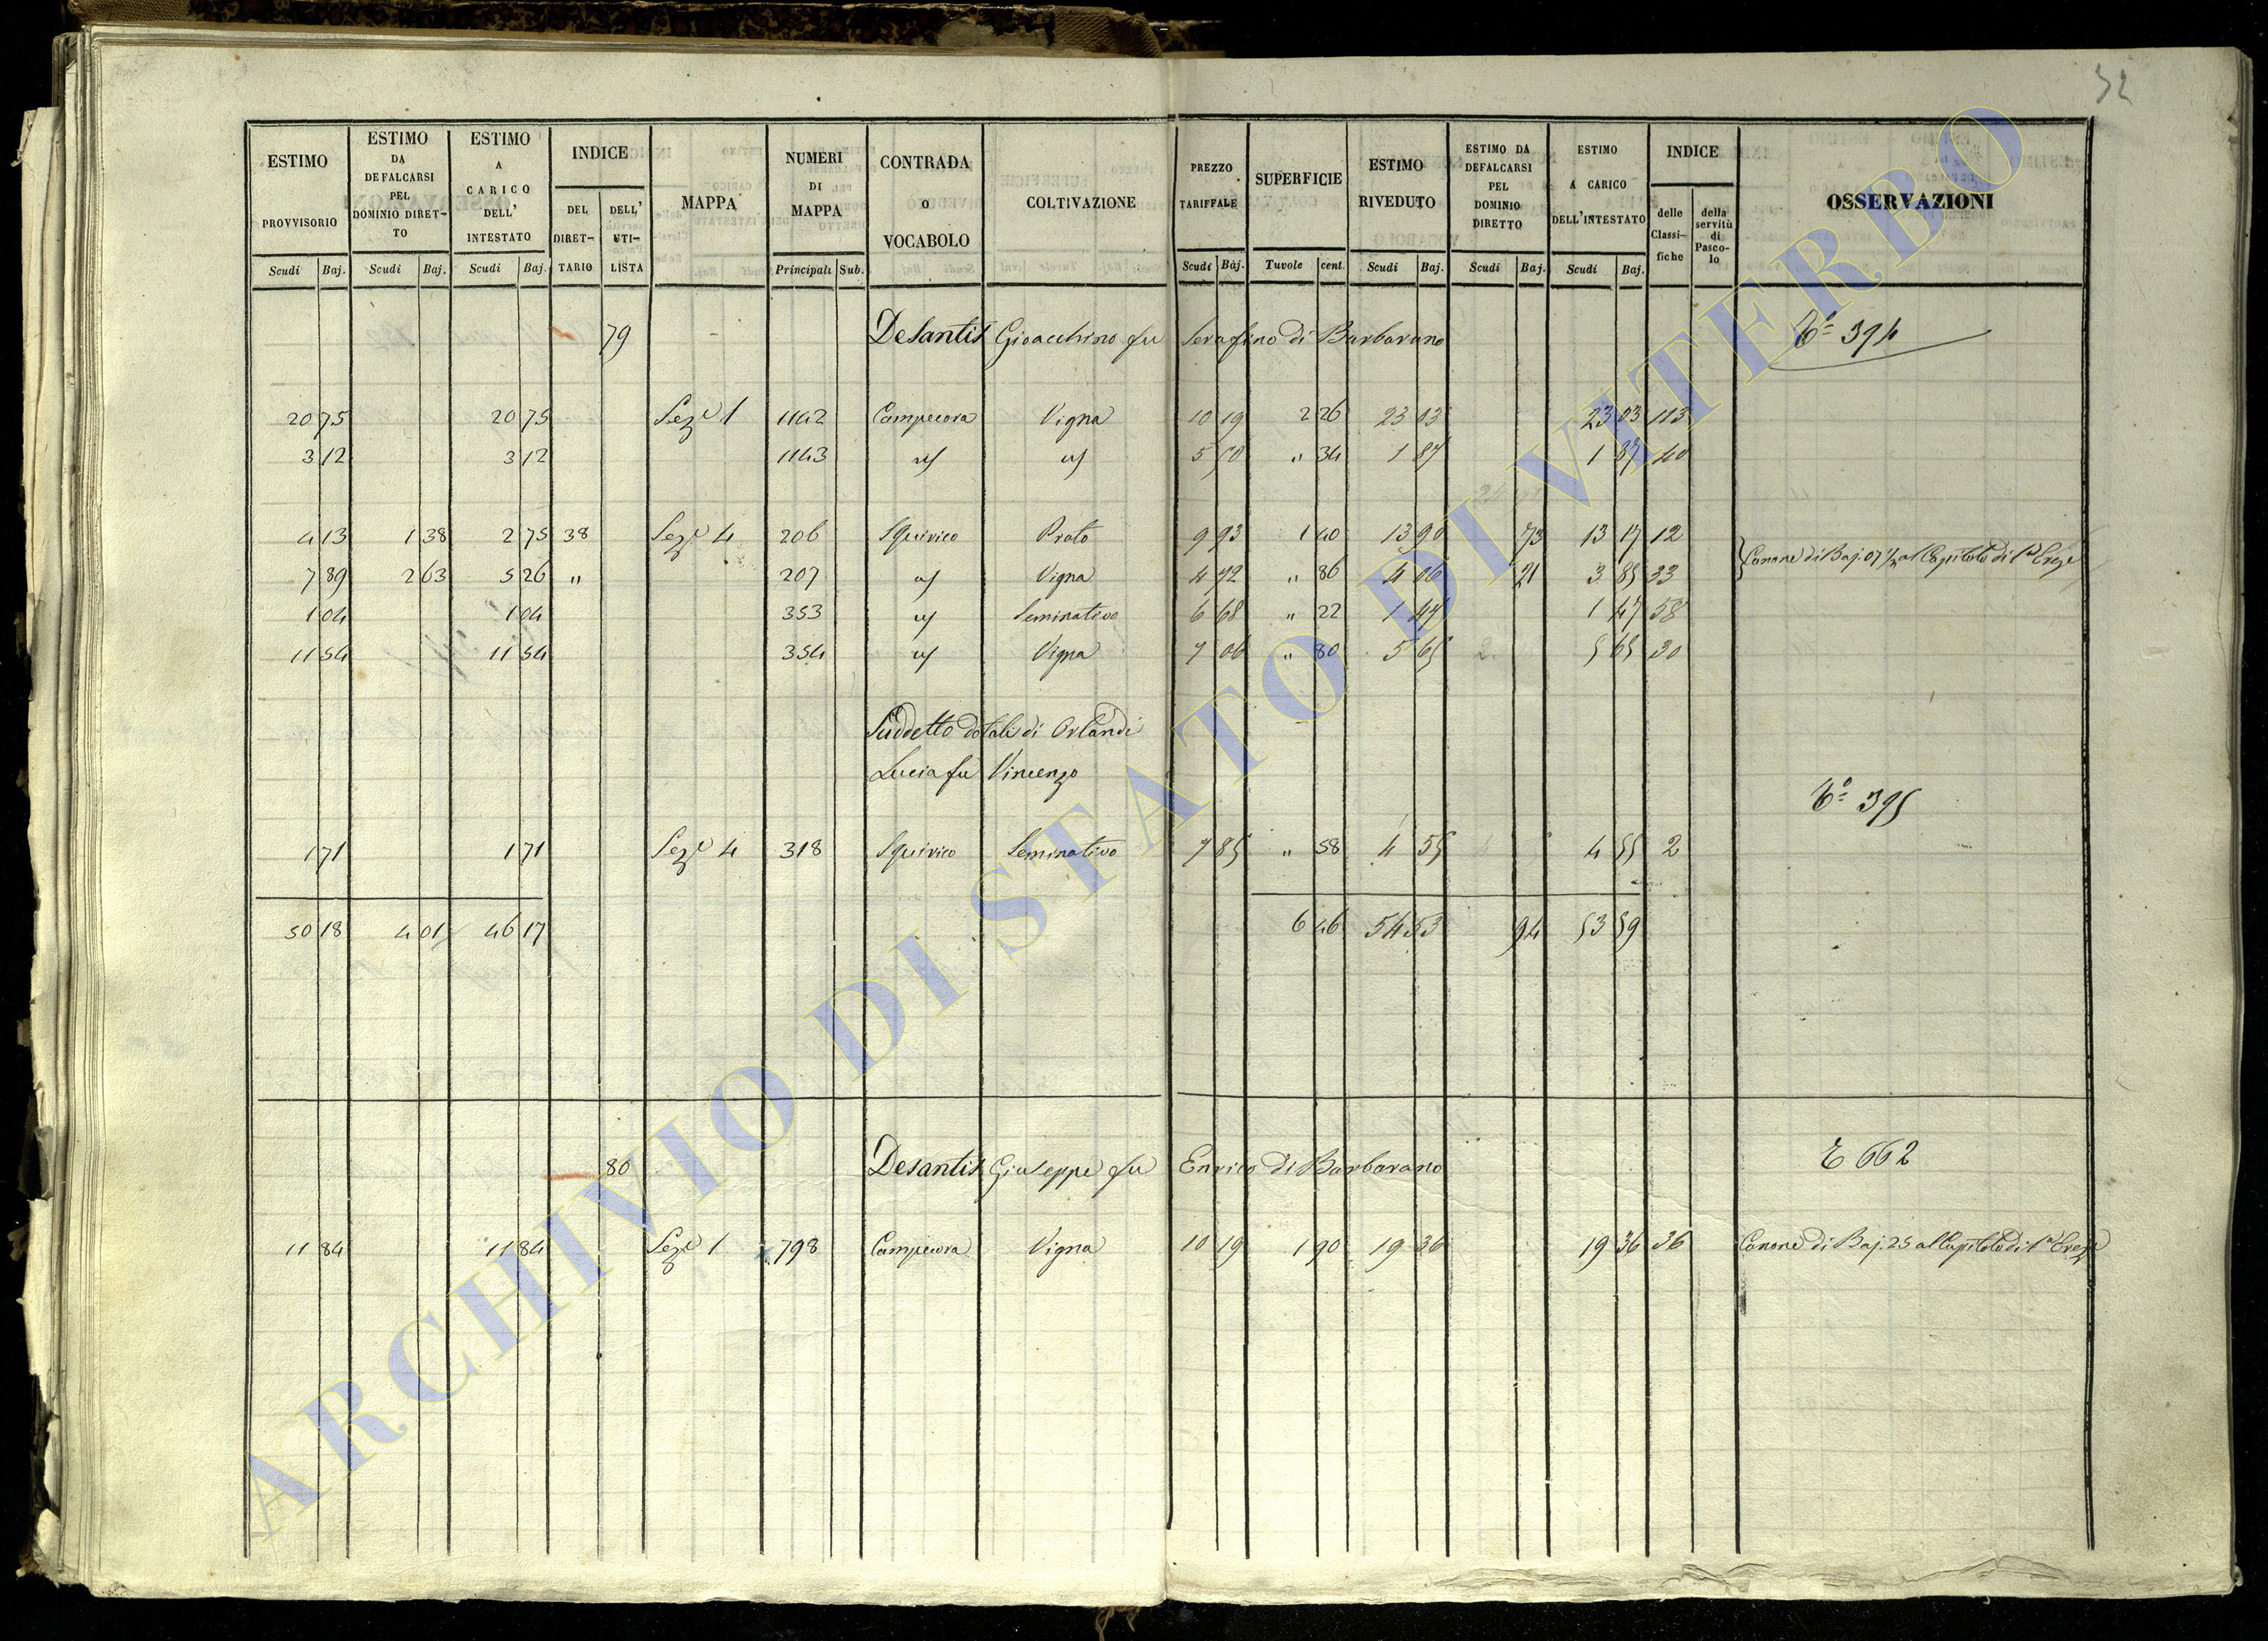 32
ESTIMO PROVVISORIO Scudi Baj.
ESTIMO DA DEFALCARSI PEL DOMINIO DIRETTO Scudi Baj.
ESTIMO A CARICO DELL' INTESTATO Scudi Baj.
INDICE DEL DIRETTARIO DELL' UTILISTA
MAPPA
NUMERI DI MAPPA Principali Sub.
CONTRADA O VOCABOLO
COLTIVAZIONE
PREZZO TARIFFALE Scudi Baj.
SUPERFICIE Tavole cent.
ESTIMO RIVEDUTO Scudi Baj.
ESTIMO DA DEFALCARSI PEL DOMINIO DIRETTO Scudi Baj.
ESTIMO A CARICO DELL'INTESTATO Scudi Baj.
INDICE delle Classifiche della servitù di Pascolo
OSSERVAZIONI
79 DeSantis Gioacchino fu Serafino di Barbarano 394
20 75 20 75 Sez.e 1 1142 Campecora Vigna 10 19 2 26 23 03 23 03 113
3 12 3 12 1143 " 34 1 87 1 87 40
4 13 1 38 2 75 38 Sez.e 4 206 SQuirico Prato 9 93 1 40 13 90 73 13 17 12
7 89 2 63 5 26 " 207 Vigna 4 72 " 86 4 06 21 3 85 33 Canone di Baj. 07 ½ al Capitolo di
1 04 1 04 353 Seminativo 6 68 " 22 1 47 1 47 58
11 54 11 54 354 Vigna 7 06 " 80 5 65 5 65 30
Suddetto dotale di Orlandi
Lucia fu Vincenzo
395
1 71 1 71 Sez.e 4 318 SQuirico Seminativo 7 85 " 58 4 55 4 55 2
50 18 4 01 46 17 6 46 54 53 94 53 59
80 Desantis Giuseppe fu Enrico di Barbarano 662
11 84 11 84 Sez.e 1 798 Campecora Vigna 10 19 1 90 19 36 19 36 36 Canone di Baj. 25 al Capitolo di
ARCHIVIO DI STATO DI VITERBO